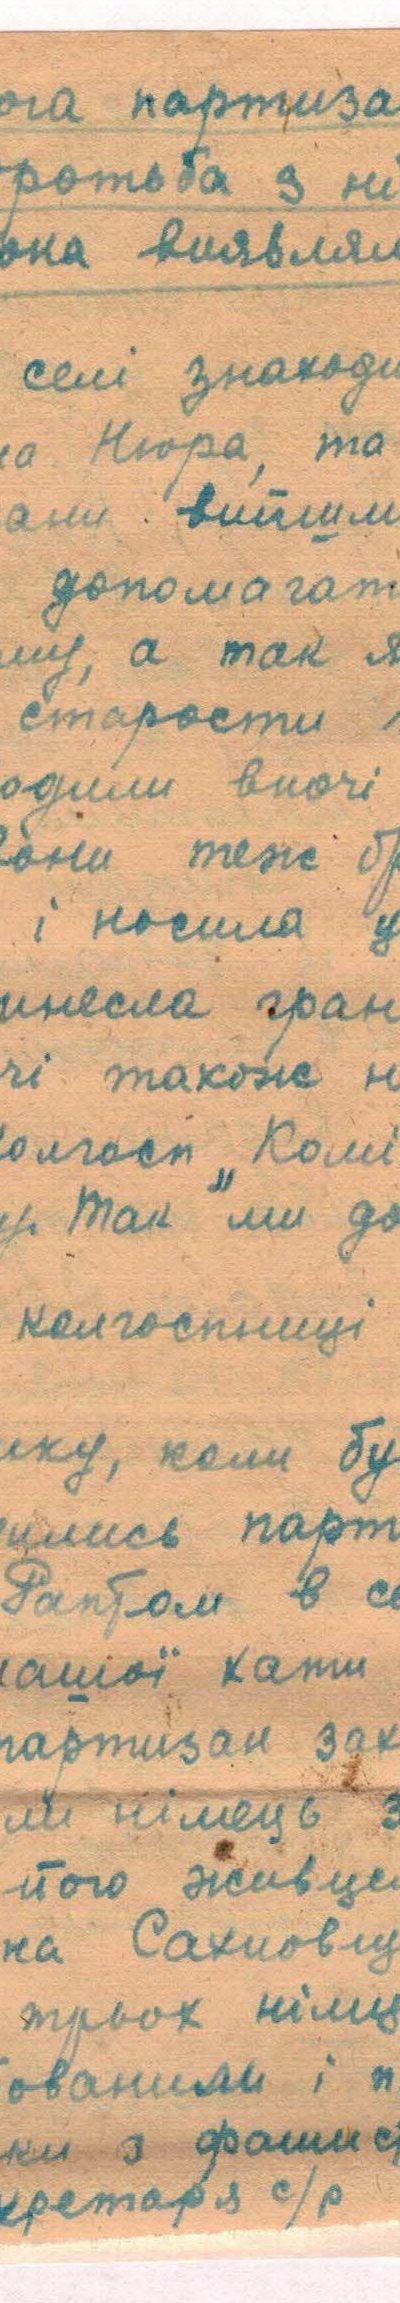 ога партиза
ротьба з ні
она виявлял
селі знаходи
на Нюра, та
ани вийшли
допомагат
му, а так я
старости
одили вночі
Вони теж бр
і носила у
инесла гран
чі також н
Колгосп „Комі
у. Так ми до
колгоспниці
ику, коли бу
ились парт
Раптом в се
нашої хати
партизан зах
ли німець з
його живцем
на Сахновщ
трьох німц
бованими і п
ки з фашист
кретаря с/р